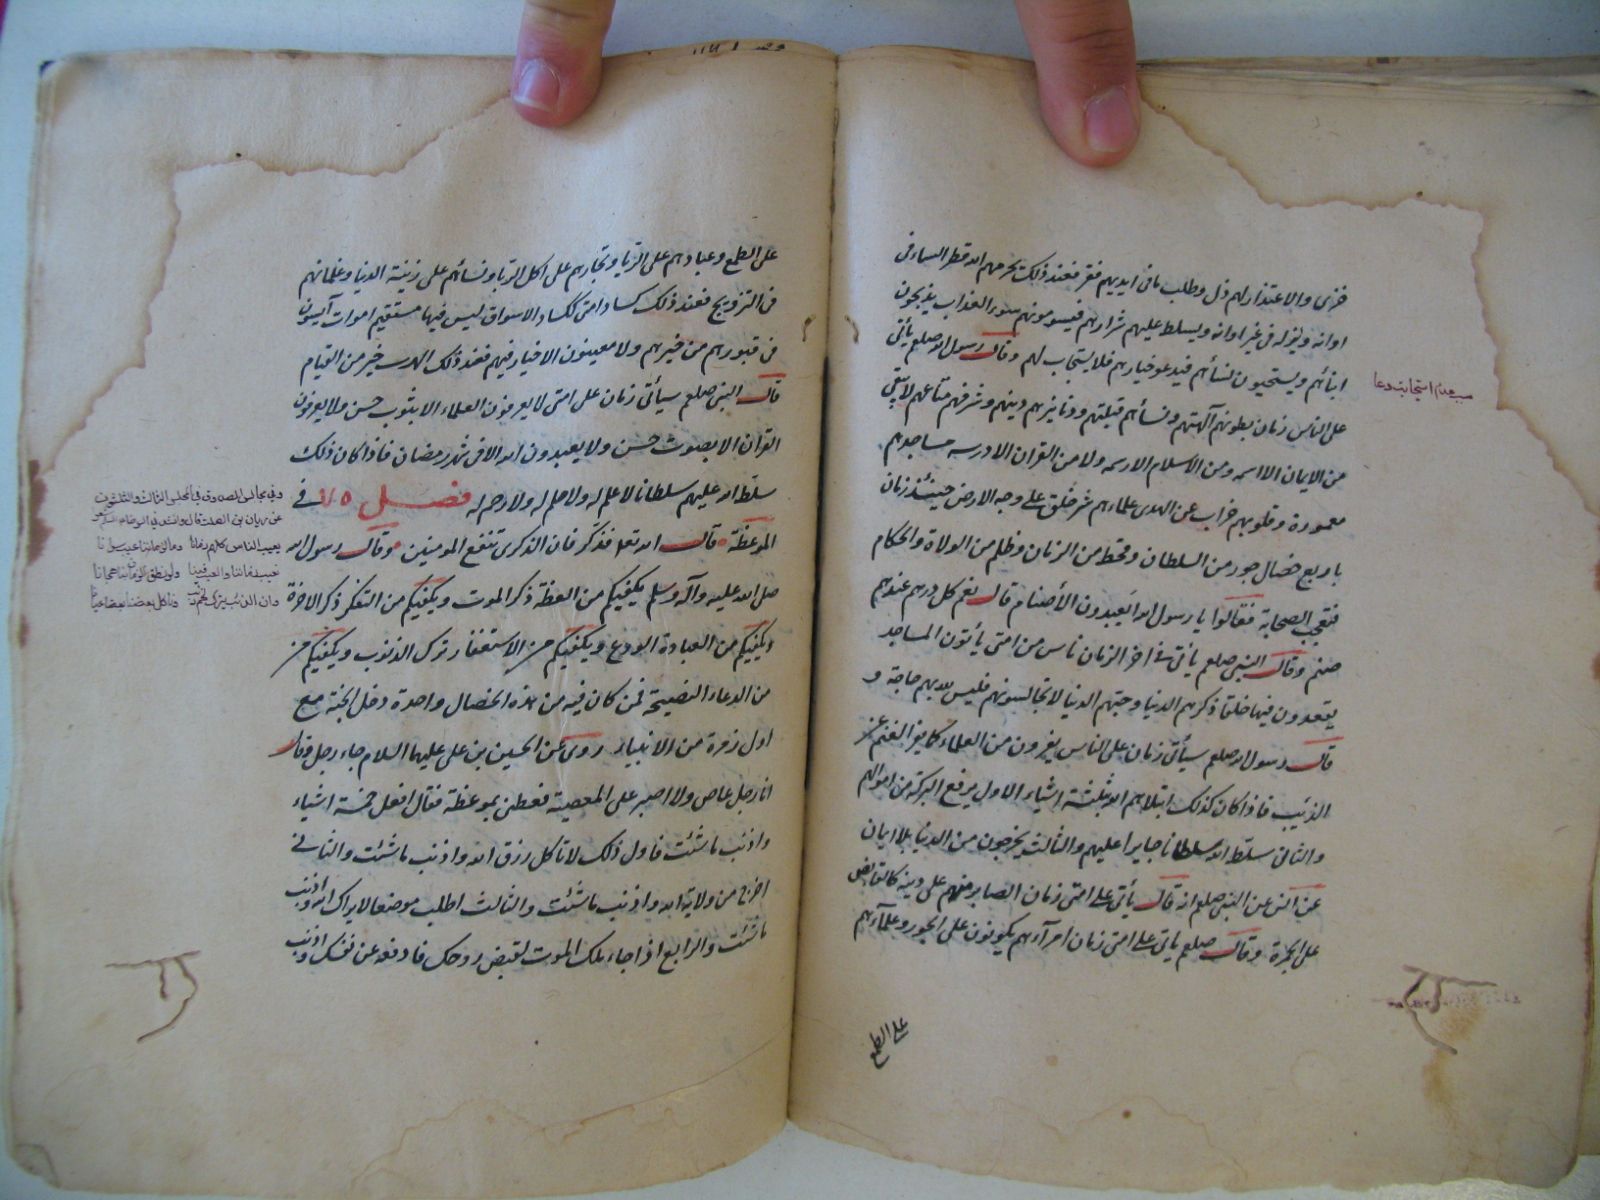 خزى والاعتذار لهم ذل وطلب ما فى ايديهم فقر فعند ذلك يحرمهم الله قطر السماء فى
اوانه وينزله فى غير اوانه ويسلط عليهم شرارهم فيسومونهم سوء العذاب يذبحون
ابنائهم ويستحيون نسائهم فيدعو خيارهم فلا يستجاب لهم وقال رسول الله صلعم يأتى
على الناس زمان بطونهم آلهتهم ونسائهم قبلتهم ودنانيرهم دينهم وشرفهم متاعهم لا يبقى
من الايمان الا اسمه ومن الاسلام الا رسمه ولا من القران الا درسه مساجدهم
معمورة وقلوبهم خراب عن الهدى علماءهم شر خلق على وجه الارض حينئذ زمان
باربع خصال جور من السلطان وقحط من الزمان وظلم من الولاة والحكام
فتعجب الصحابة فقالوا يا رسول الله أيعبدون الأصنام قال نعم كل درهم عندهم
صنم وقال النبى صلعم يأتى فى اخر الزمان ناس من امتى يأتون المساجد
يقعدون فيها حلقا ذكرهم الدنيا وحبهم الدنيا لا تجالسونهم فليس لله بهم حاجة و
قال رسول الله صلعم سيأتى زمان على الناس يفرون من العلماء كما يفر الغنم عن
الذئب فاذا كان كذلك ابتلاهم الله بثلثة اشياء الاول يرفع البركة من اموالهم
والثانى سلط الله سلطانا جايرا عليهم والثالث يخرجون من الدنيا بلا ايمان
عن انس عن النبى صلعم انه قال يأتى على امتى زمان الصابر منهم على دينه كالقابض
على الجمرة وقال صلعم ياتى على امتى زمان امرآءهم يكونون على الجور وعلمآءهم
على الطمع
سبب عدم استجابت دعا
على الطمع وعبادهم على الريا وتجارهم على اكل الربا ونسائهم على زينة الدنيا وغلمانهم
فى التزويج فعند ذلك كساد امتى ككساد الاسواق ليس فيها مستقيم اموات آيسون
فى قبورهم من خيرهم ولا معينون الاخيار فيهم فعند ذلك الهرب خير من القيام
قال النبى صلعم سيأتى زمان على امتى لا يعرفون العلماء الا بثوب حسن ولا يعرفون
القران الا بصوت حسن ولا يعبدون الله الا فى شهر رمضان فاذا كان ذلك
سلط الله عليهم سلطانا لا علم له ولا حلم له ولا رحم له فصل فى
الموعظة قال الله تعلى فذكر فان الذكرى تنفع المومنين وقال رسول الله
صلى الله عليه وآله وسلم يكفيكم من العظة ذكر الموت ويكفيكم من التفكر ذكر الاخرة
ويكفيكم من العبادة الورع ويكفيكم من الاستغفار ترك الذنوب ويكفيكم من
من الدعاء النصيحة فمن كان فيه من هذه الخصال واحدة دخل الجنة مع
اول زمرة من الانبياء روى عن الحسين بن على عليهما السلام جاء رجل وقال
انا رجل عاص ولا اصبر على المعصية فعظنى بموعظة فقال افعل خمسة اشياء
واذنب ما شئت فاول ذلك لا تاكل رزق الله واذنب ما شئت والثانى
اخرج من ولاية الله واذنب ما شئت والثالث اطلب موضعا لا يراك الله واذنب
ما شئت والرابع اذا جاء ملك الموت لقبض روحك فادفعه عن نفسك واذنب
وفى مجالس الصدوق فى المجلس الثالث
عن ريان بن الصلت قال
يعيب الناس كلهم زمانا وما لزماننا عيب سوانا
نعيب زماننا والعيب فينا ولو نطق الزمان بنا هجانا
وان الذئب يترك لحم ذئب وياكل بعضنا بعضا عيانا